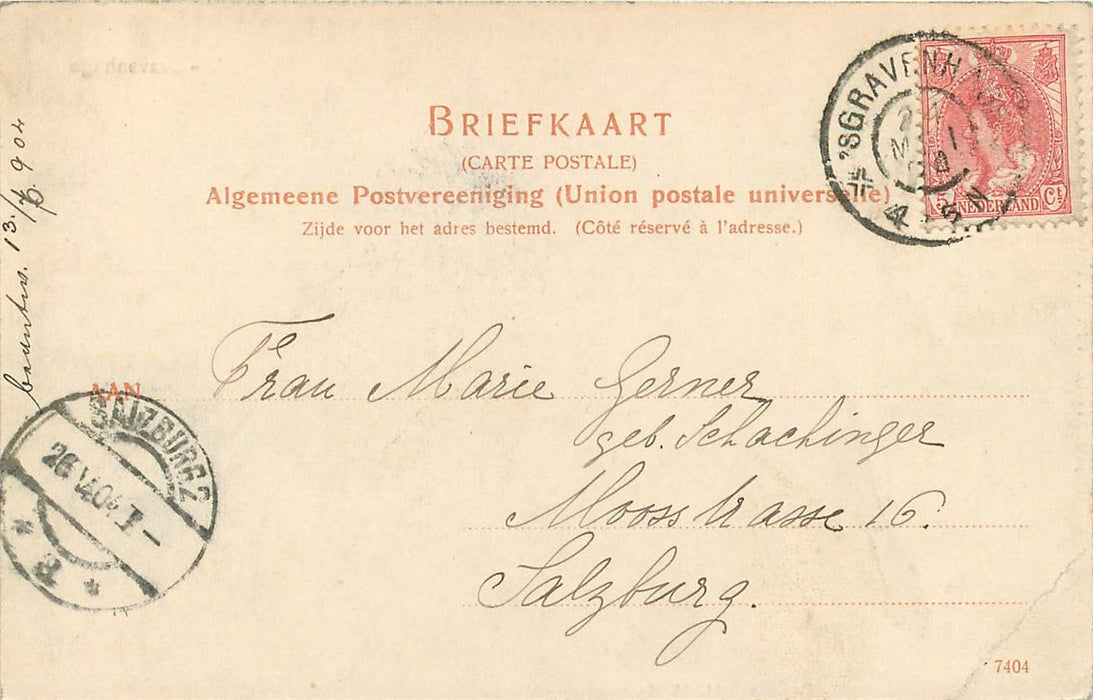 BRIEFKAART
(CARTE POSTALE)
Algemeene Postvereeniging (Union postale universelle)
Zijde voor het adres bestemd. (Côté réservé à l'adresse.)
'SGRAVENHAGE
4-5N
5 NEDERLAND Ct
AAN
Frau Marie Gerner
geb. Schachinger
Moosstrasse 16.
Salzburg.
SALZBURG 2
26 V 04 I-
* B *
beantw. 13/7 904
7404